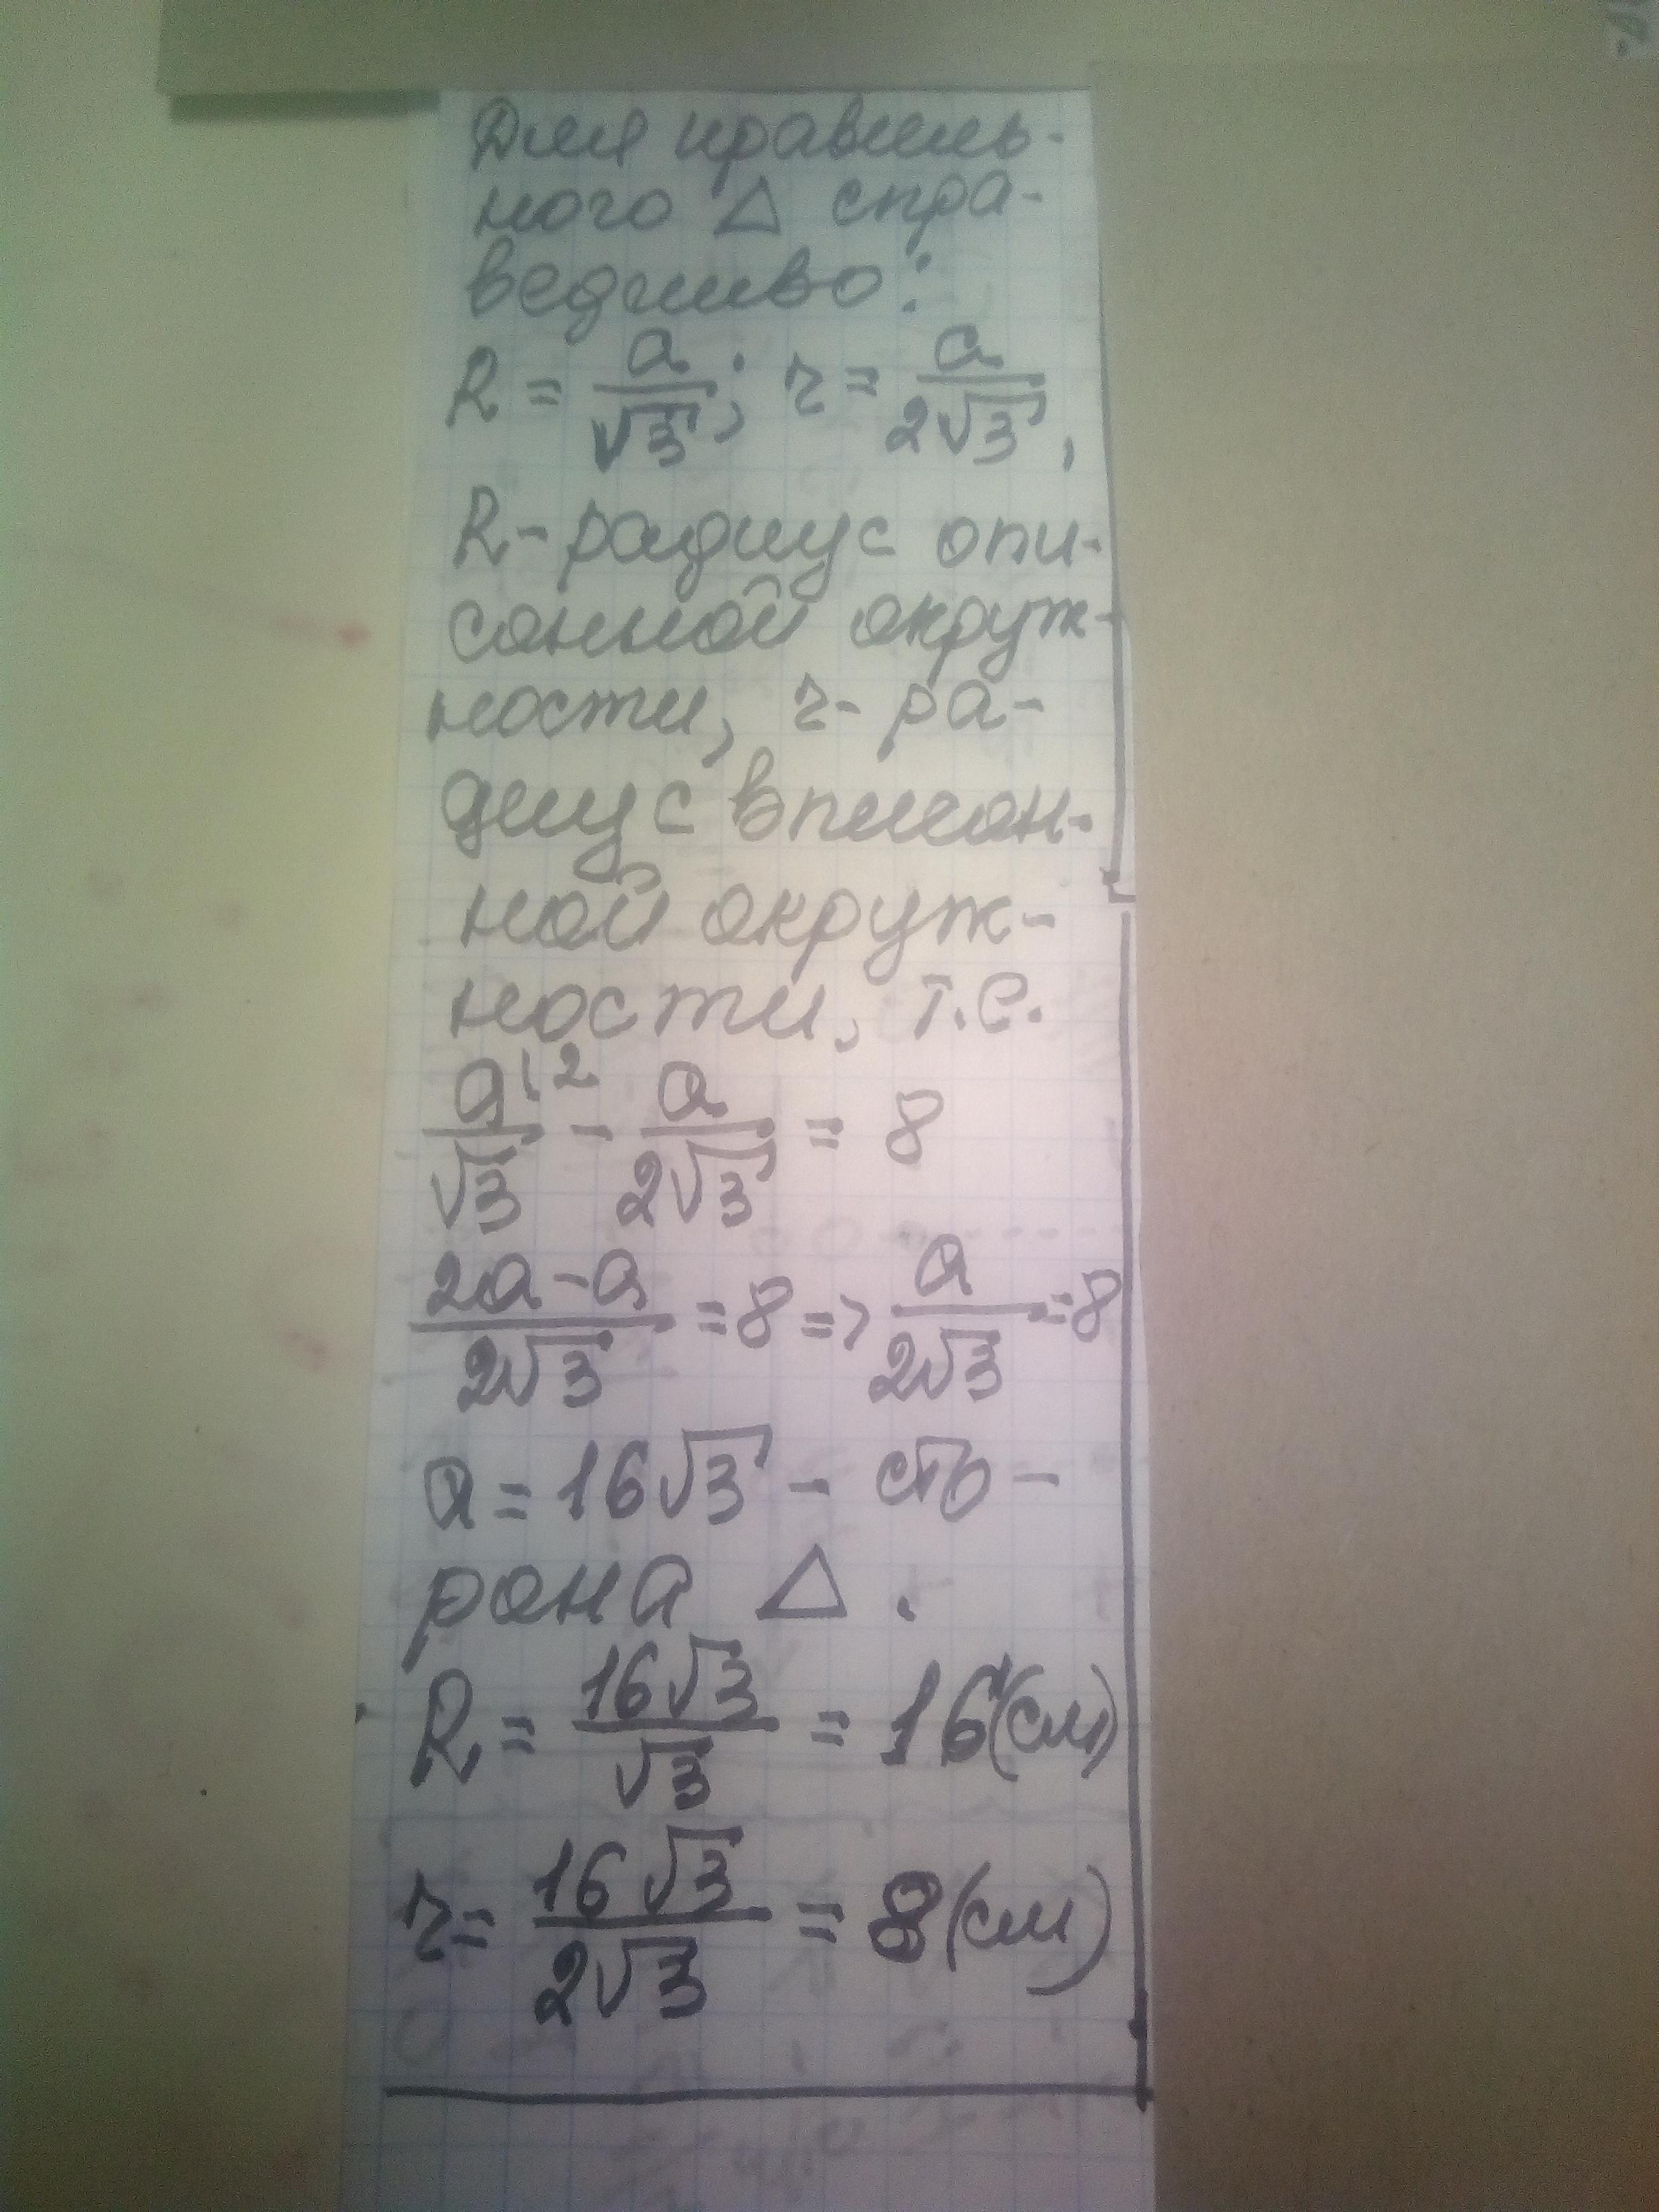 Для правиль-
ного △ спра-
ведливо:
R = a/√3; r = a/2√3,
R-радиус опи-
санной окруж-
ности, r- ра-
диус вписан-
ной окруж-
ности, т.е.
a^{\2}/√3 - a/2√3 = 8
2a-a/2√3 = 8 => a/2√3 = 8
a = 16√3 - сто-
рона △.
R = 16√3/√3 = 16(см)
r = 16√3/2√3 = 8(см)